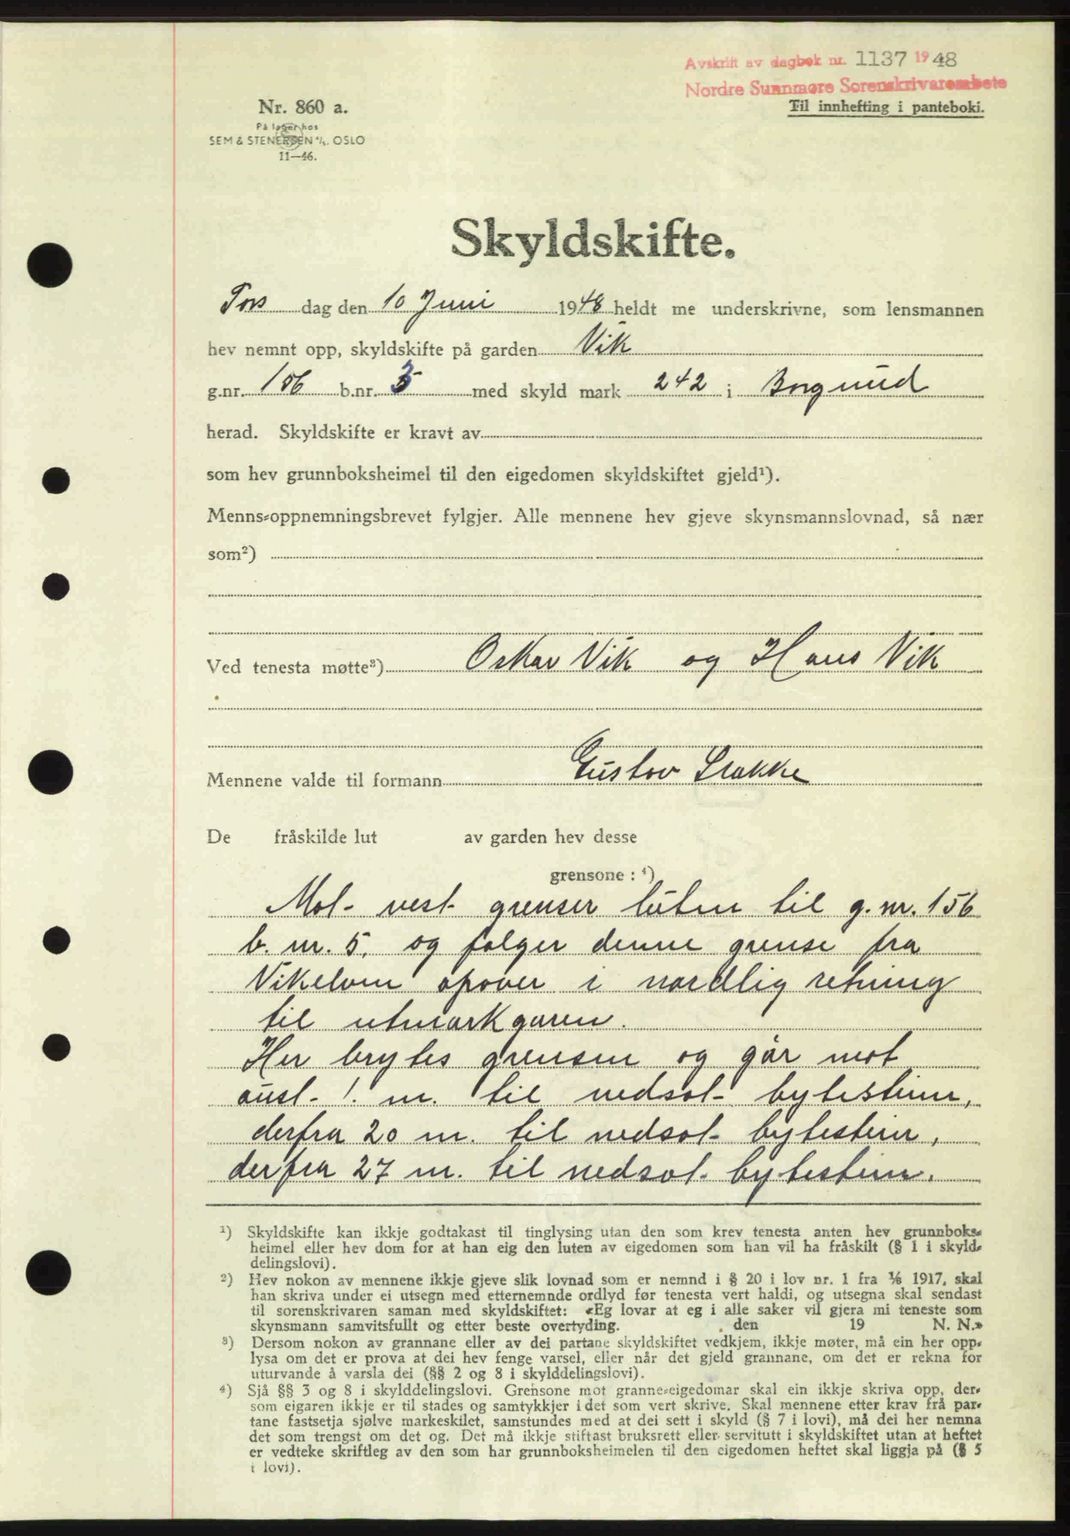 Avskrift av dagbok nr. 1137 1948
Nordre Sunnmøre Sorenskrivarembete
Nr. 860 a.
Til innhefting i panteboki.
På lager hos
SEM & STENERSEN A/S. OSLO
11—46.
Skyldskifte.
Tors dag den 10 Juni 1948 heldt me underskrivne, som lensmannen
hev nemnt opp, skyldskifte på garden Vik
g.nr. 156 b.nr. 3 med skyld mark 242 i Borgund
herad. Skyldskifte er kravt av
som hev grunnboksheimel til den eigedomen skyldskiftet gjeld¹).
Menns-oppnemningsbrevet fylgjer. Alle mennene hev gjeve skynsmannslovnad, så nær
som²)
Ved tenesta møtte³) Oskar Vik og Hans Vik
Mennene valde til formann Gustav Stokke
De fråskilde lut av garden hev desse
grensone : ⁴)
Mot vest grenser luten til g. nr. 156
b. nr. 5, og følger denne grense fra
Vikelven opover i nordlig retning
til utmarkgaren.
Her brytes grensen og går mot
aust 1. m. til nedsat bytestein,
derfra 20 m. til nedsat bytestein,
derfra 27 m. til nedsat bytestein.
¹) Skyldskifte kan ikkje godtakast til tinglysing utan den som krev tenesta anten hev grunnboks-
heimel eller hev dom for at han eig den luten av eigedomen som han vil ha fråskilt (§ 1 i skyld-
delingslovi).
²) Hev nokon av mennene ikkje gjeve slik lovnad som er nemnd i § 20 i lov nr. 1 fra 1/6 1917, skal
han skriva under ei utsegn med etternemnde ordlyd før tenesta vert haldi, og utsegna skal sendast
til sorenskrivaren saman med skyldskiftet: «Eg lovar at eg i alle saker vil gjera mi teneste som
skynsmann samvitsfullt og etter beste overtyding. den 19 N. N.»
³) Dersom nokon av grannane eller av dei partane skyldskiftet vedkjem, ikkje møter, må ein her opp-
lysa om det er prova at dei hev fenge varsel, eller når det gjeld grannane, om det er rekna for
uturvande å varsla dei (§§ 2 og 8 i skylddelingslovi).
⁴) Sjå §§ 3 og 8 i skylddelingslovi. Grensone mot granne-eigedomar skal ein ikkje skriva opp, der-
som eigaren ikkje er til stades og samtykkjer i det som vert skrive. Skal mennene etter krav frå par-
tane fastsetja sjølve markeskilet, samstundes med at dei sett i skyld (§ 7 i lovi), må dei her nemna
det som trengst om det og. Det må ikkje stiftast bruksrett eller servitutt i skyldskiftet utan at heftet
er vedteke skriftleg av den som har grunnboksheimelen til den eigedomen heftet skal liggja på (§ 5
i lovi).